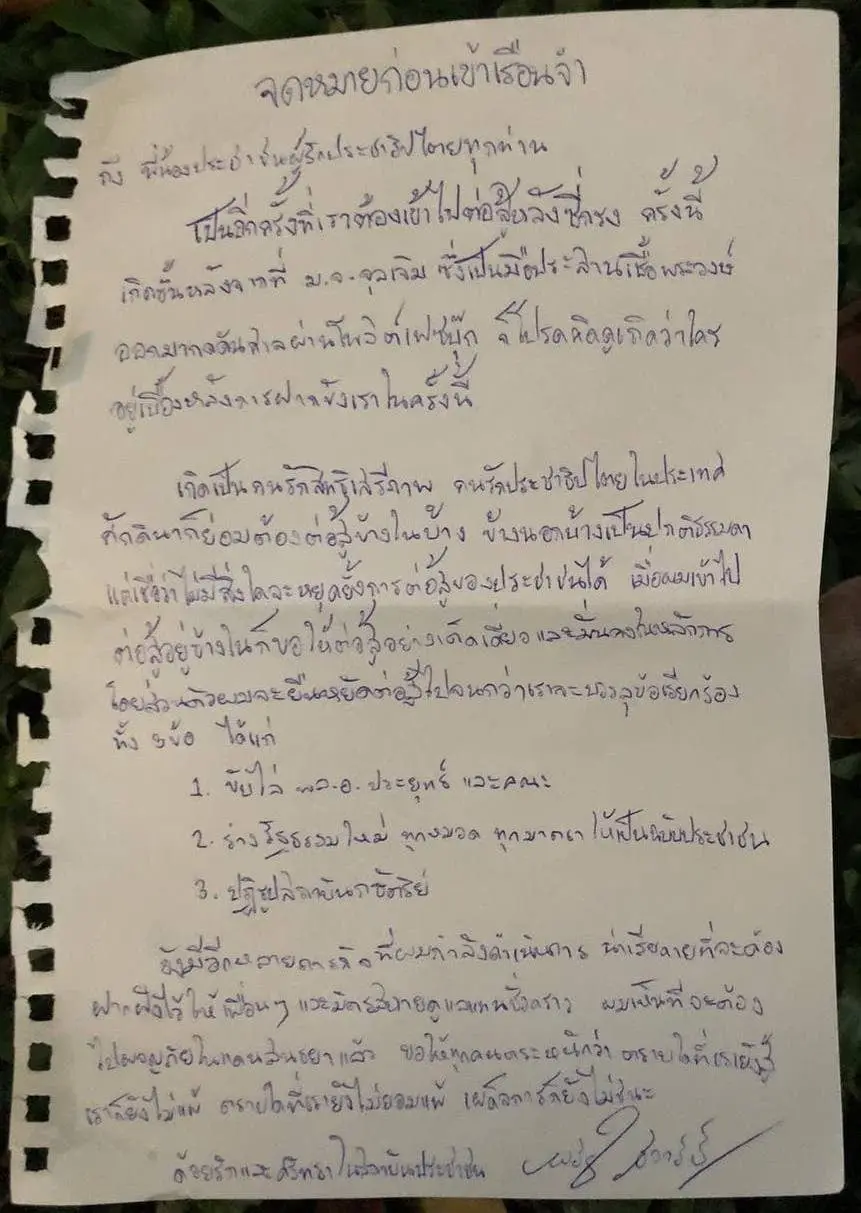 จดหมายก่อนเข้าเรือนจำ
ถึง พี่น้องประชาชนผู้รักประชาธิปไตยทุกท่าน
เป็นอีกครั้งที่เราต้องเข้าไปต่อสู้หลังซี่กรง ครั้งนี้
เกิดขึ้นหลังจากที่ ม.จ.จุลเจิม ซึ่งเป็นมือประสานเชื้อพระวงษ์
ออกมากดดันศาลผ่านโพสต์เฟซบุ๊ก ก็โปรดคิดดูเถิดว่าใคร
อยู่เบื้องหลังการฝากขังเราในครั้งนี้
เกิดเป็นคนรักสิทธิเสรีภาพ คนรักประชาธิปไตยในประเทศ
ศักดินาก็ย่อมต้องต่อสู้ข้างในบ้าง ข้างนอกบ้างเป็นปกติธรรมดา
แต่เชื่อว่าไม่มีสิ่งใดจะหยุดยั้งการต่อสู้ของประชาชนได้ เมื่อผมเข้าไป
ต่อสู้อยู่ข้างในก็ขอให้ต่อสู้อย่างเด็ดเดี่ยวและมั่นคงในหลักการ
โดยส่วนตัวผมจะยืนหยัดต่อสู้ไปจนกว่าเราจะบรรลุข้อเรียกร้อง
ทั้ง 3ข้อ ได้แก่
1. ขับไล่ พล.อ.ประยุทธ์ และคณะ
2. ร่างรัฐธรรมใหม่ ทุกหมวด ทุกมาตรา ให้เป็นฉบับประชาชน
3. ปฏิรูปสถาบันกษัตริย์
ยังมีอีกหลายภารกิจที่ผมกำลังดำเนินการ น่าเสียดายที่จะต้อง
ฝากฝังไว้ให้เพื่อนๆ และมิตรสหายดูแลแทนชั่วคราว ผมเห็นทีจะต้อง
ไปผจญภัยในแดนสนธยาแล้ว ขอให้ทุกคนตระหนักว่า ตราบใดที่เรายังสู้
เราก็ยังไม่แพ้ ตราบใดที่เรายังไม่ยอมแพ้ เผด็จการก็ยังไม่ชนะ
ด้วยรักและศรัทธาในสถาบันประชาชน พริษฐ์ ชิวารักษ์